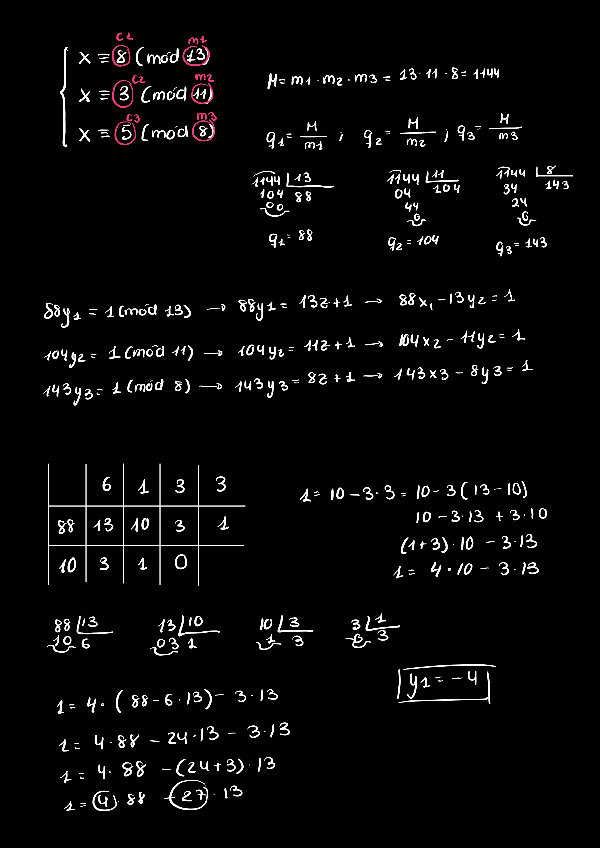 c1 m1
x ≡ 8 (mód 13)
c2 m2
x ≡ 3 (mód 11)
c3 m3
x ≡ 5 (mód 8)
M = m1 · m2 · m3 = 13 · 11 · 8 = 1144
q1 = M/m1 ; q2 = M/m2 ; q3 = M/m3
1144 | 13
104 88
00
q1 = 88
1144 | 11
04 104
44
0
q2 = 104
1144 | 8
34 143
24
0
q3 = 143
88y1 = 1 (mód 13) → 88y1 = 13z + 1 → 88x1 - 13y2 = 1
104y2 = 1 (mód 11) → 104y2 = 11z + 1 → 104x2 - 11y2 = 1
143y3 = 1 (mód 8) → 143y3 = 8z + 1 → 143x3 - 8y3 = 1
6 1 3 3
88 13 10 3 1
10 3 1 0
1 = 10 - 3 · 3 = 10 - 3 (13 - 10)
10 - 3 · 13 + 3 · 10
(1+3) · 10 - 3 · 13
1 = 4 · 10 - 3 · 13
88 | 13
10 6
13 | 10
03 1
10 | 3
1 3
3 | 1
0 3
y1 = -4
1 = 4 · (88 - 6 · 13) - 3 · 13
1 = 4 · 88 - 24 · 13 - 3 · 13
1 = 4 · 88 - (24 + 3) · 13
1 = 4 · 88 - 27 · 13